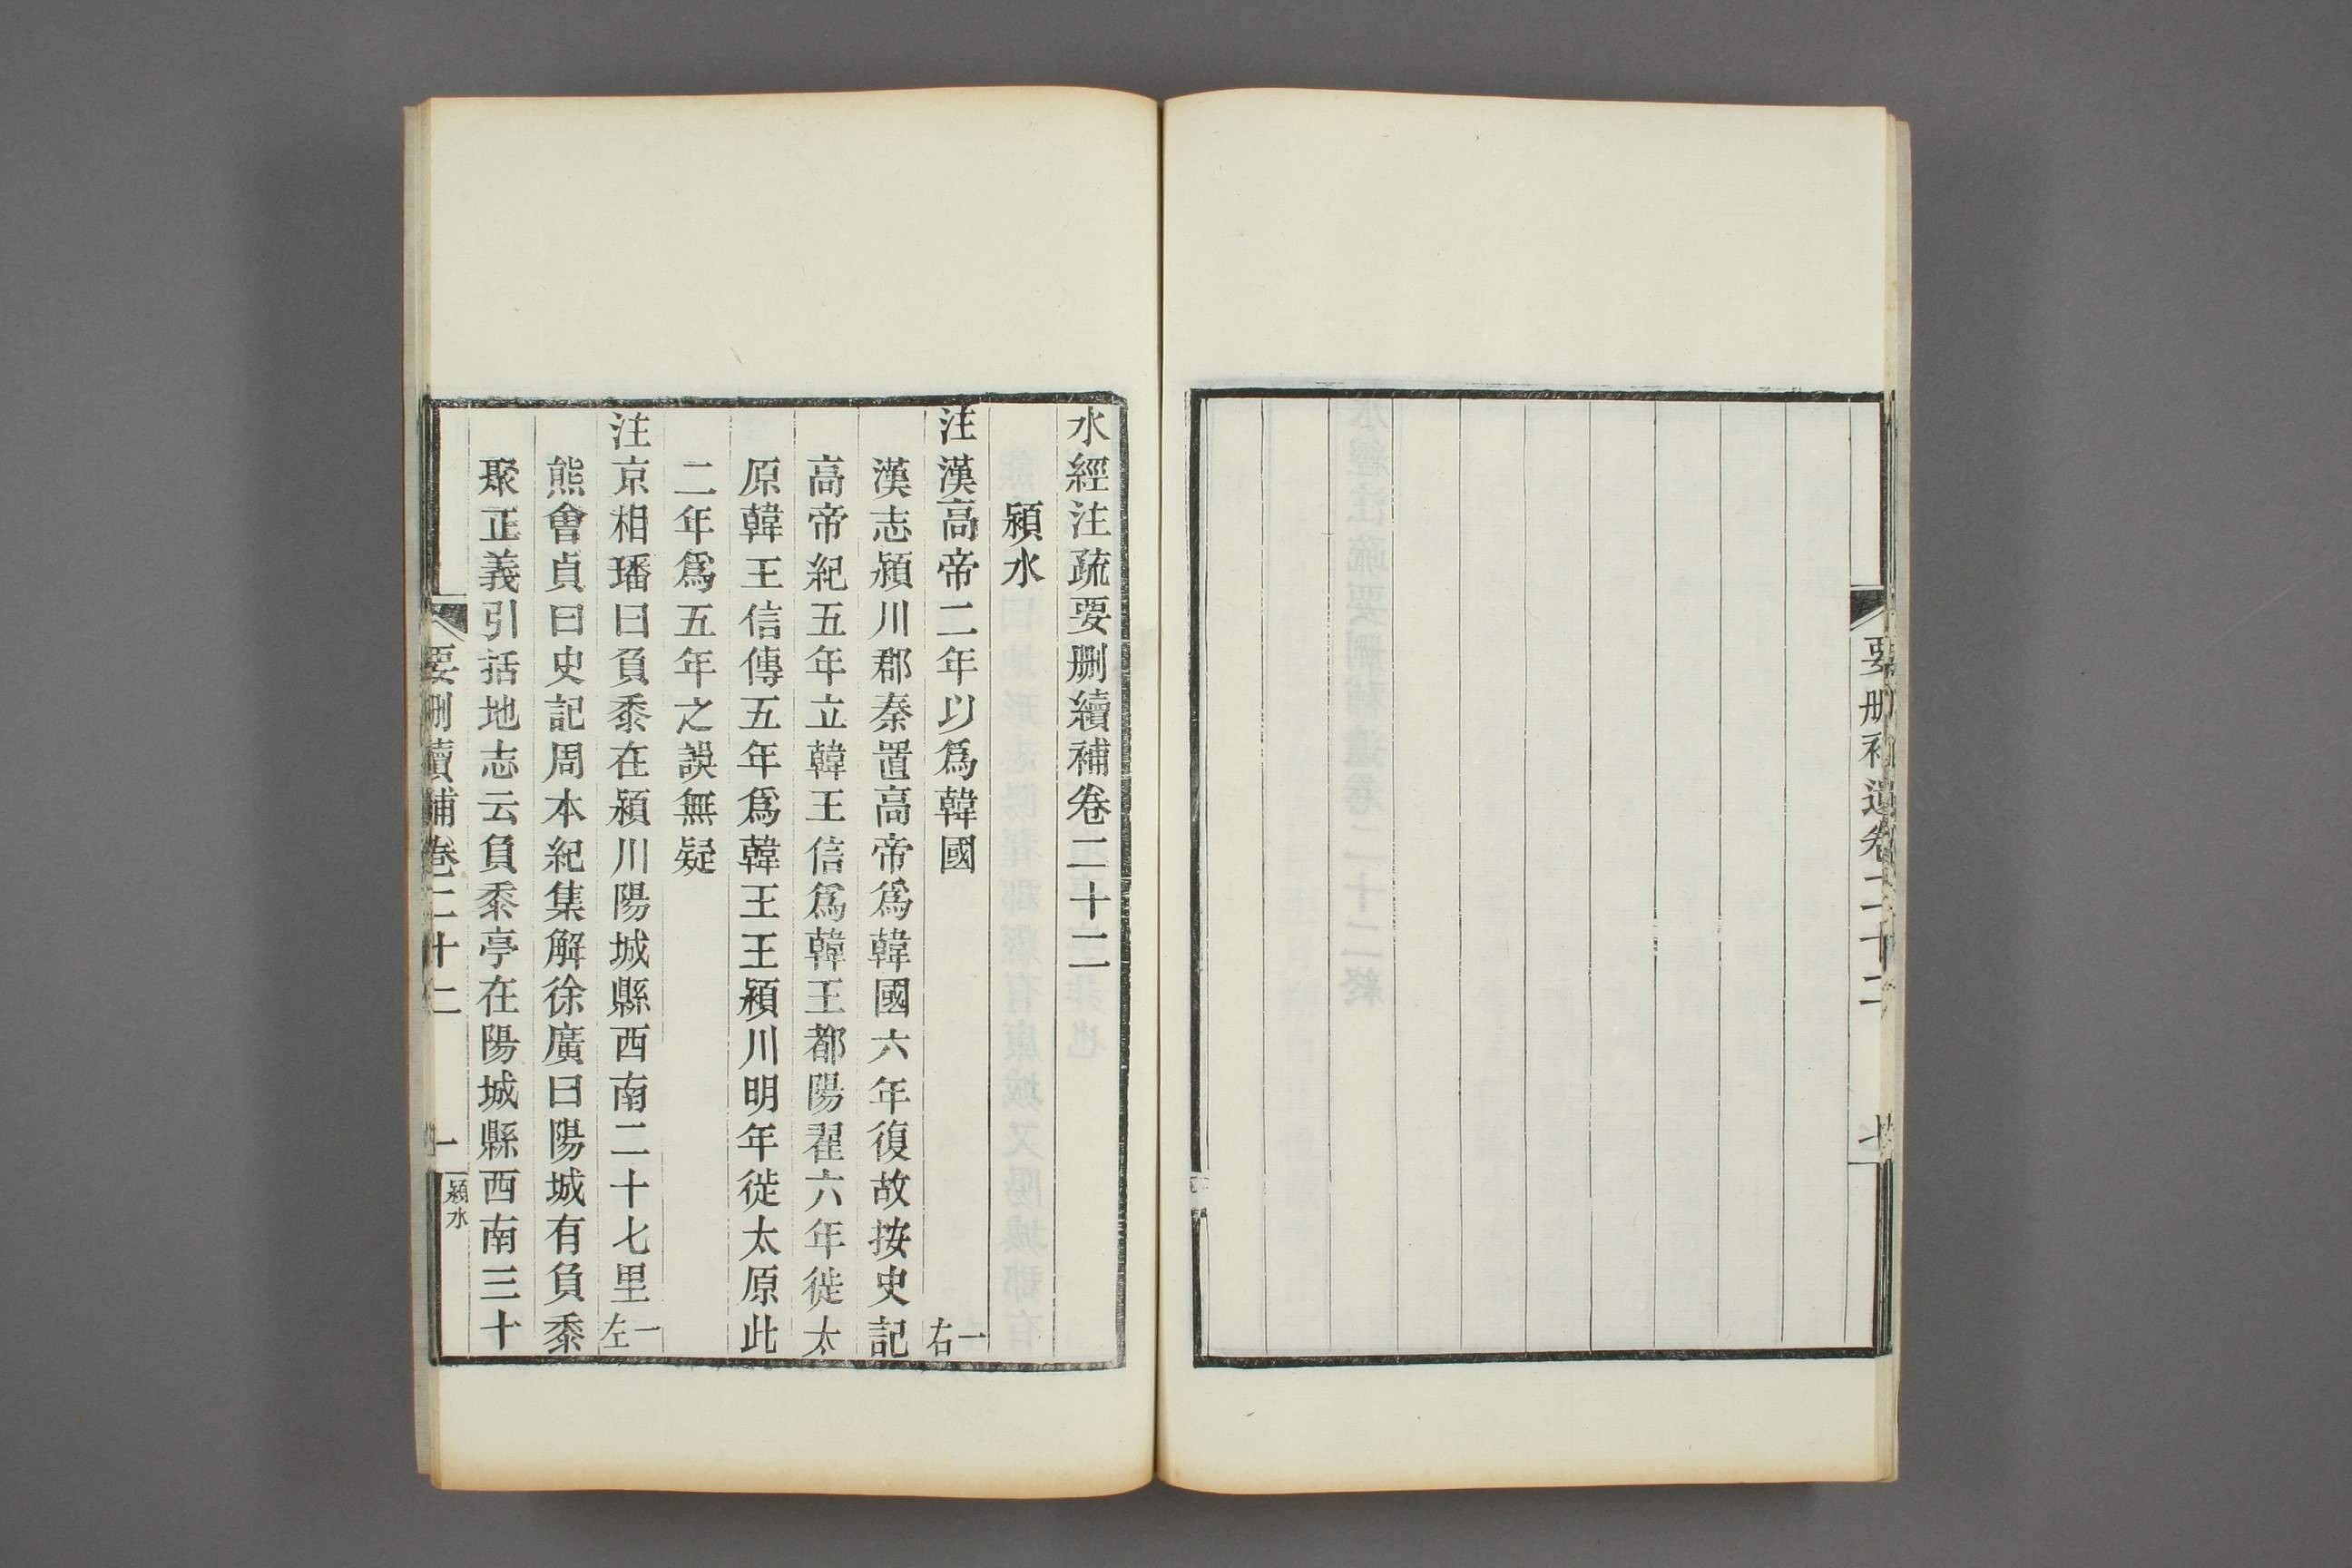 要删補遺卷二十二
七
水經注疏要删續補卷二十二
潁水
注漢高帝二年以爲韓國 一右
漢志潁川郡秦置高帝爲韓國六年復故按史記
高帝紀五年立韓王信爲韓王都陽翟六年徙太
原韓王信傳五年爲韓王王潁川明年徙太原此
二年爲五年之誤無疑
注京相璠曰負黍在潁川陽城縣西南二十七里 一左
熊會貞曰史記周本紀集解徐廣曰陽城有負黍
聚正義引括地志云負黍亭在陽城縣西南三十
要删續補卷二十二
一
潁水